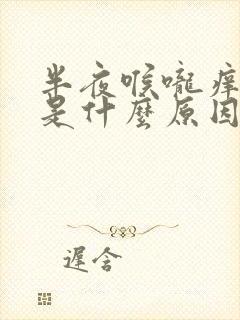 半夜喉嚨癢
是什麼原因
遲含